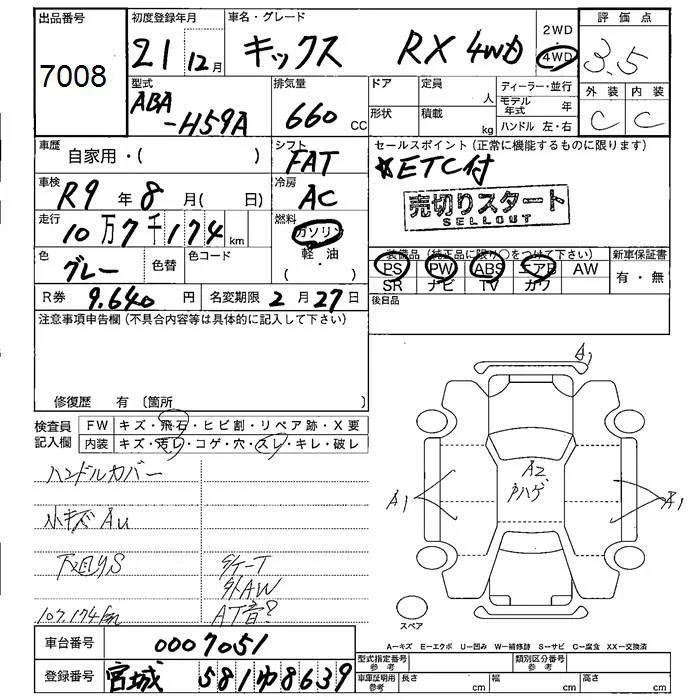 出品番号 初度登録年月 車名・グレード 2WD・4WD 評価点
7008 21 12月 キックス RX 4WD 3.5
型式 排気量 ドア 定員 人 ディーラー・並行 外装 内装
ABA-H59A 660 CC 形状 積載 kg モデル年式 年 C C
ハンドル 左・右
車歴 自家用・( ) シフト FAT セールスポイント(正常に機能するものに限ります)
☆ETC付
車検 R9年8月( 日) 冷房 AC
売切りスタート
SELLOUT
走行 10万7千174km 燃料 ガソリン・軽油
色 グレー 色替 色コード
装備品(純正品に限り○をつけて下さい) 新車保証書
PS PW ABS エアB AW 有・無
SR ナビ TV カワ
R券 9.640円 名変期限 2月27日 後日品
注意事項申告欄(不具合内容等は具体的に記入して下さい)
修復歴 有 〔箇所
検査員記入欄 FW キズ・飛石・ヒビ割・リペア跡・X要
内装 キズ・汚レ・コゲ・穴・スレ・キレ・破レ
ハンドルカバー
小キズ AU
下廻りS
外AW
107.174km AT音?
A1
A2
ハゲ
A1 A1
スペア
A-キズ E-エクボ U-凹み W-補修跡 S-サビ C-腐食 XX-交換済
車台番号 0007051
型式指定番号 参考 類別区分番号 参考
登録番号 宮城 581 ゆ 8639
車庫証明用 参考 長さ cm 幅 cm 高さ cm